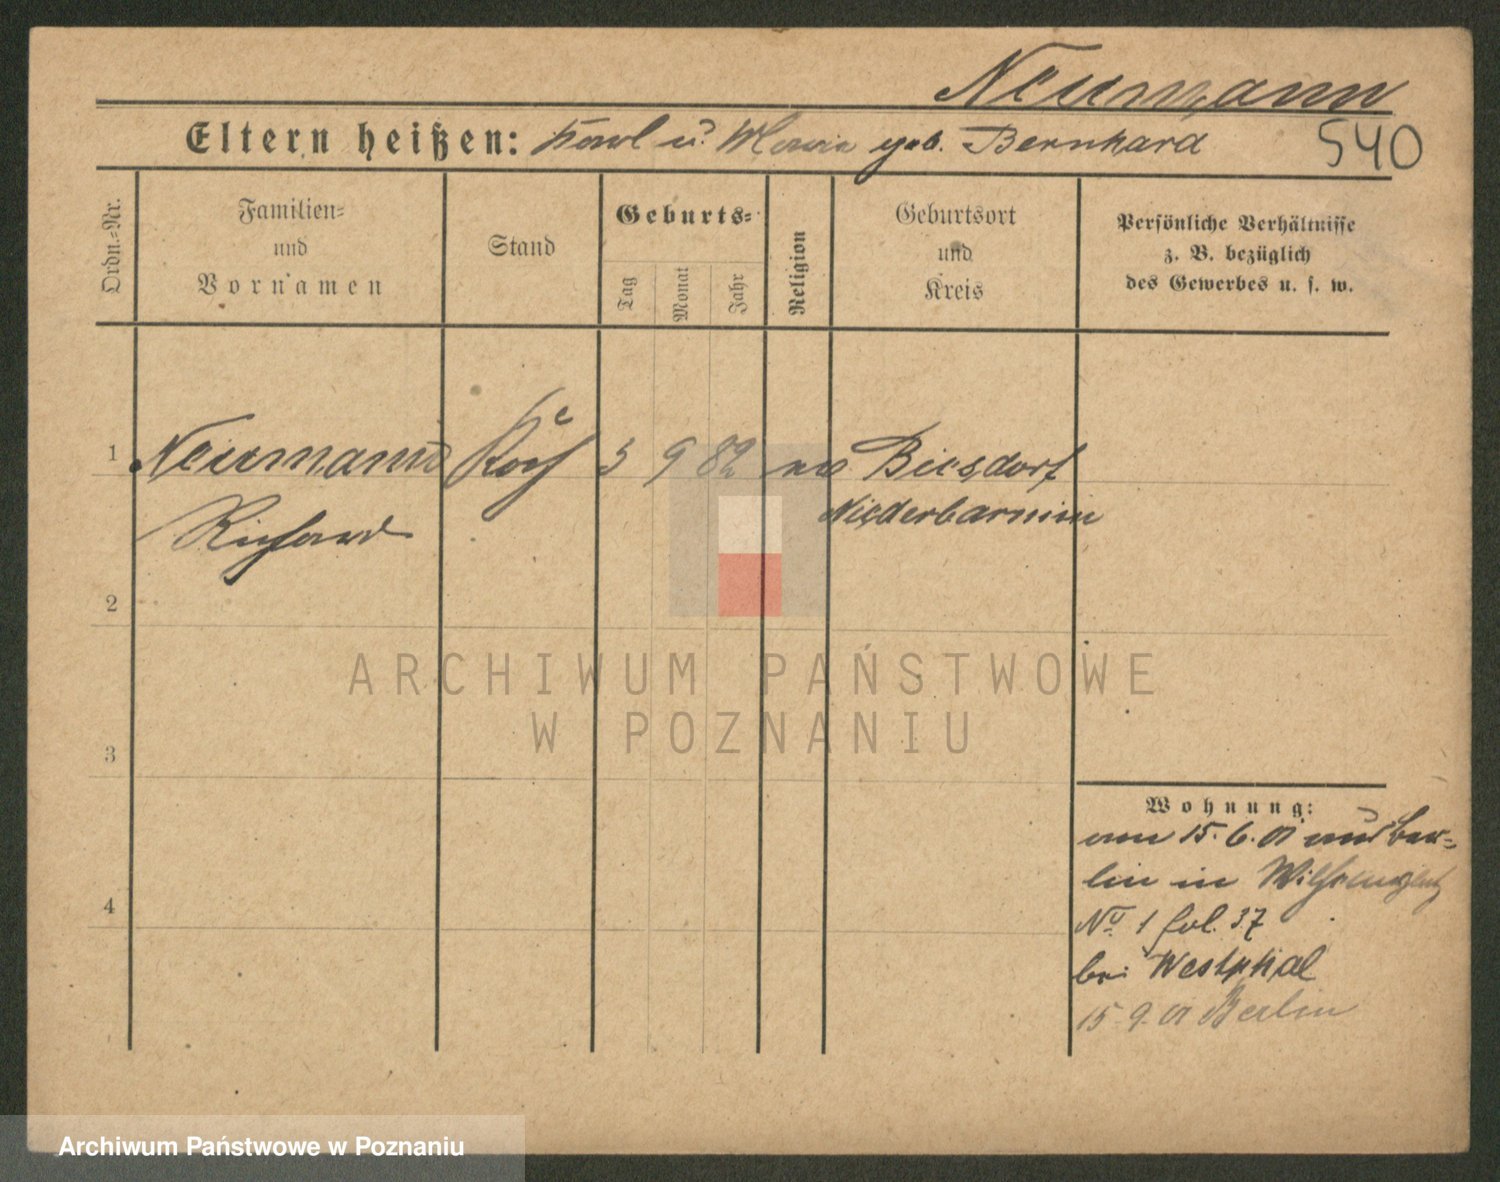 Neumann
Eltern heißen: Karl u. Maria geb. Bernhard
540
Ordn.-Nr.
Familien-
und
Vornamen
Stand
Geburts-
Tag
Monat
Jahr
Religion
Geburtsort
und
Kreis
Persönliche Verhältnisse
z. B. bezüglich
des Gewerbes u. s. w.
1
Neumann
Koch
5 9 82
Biesdorf
Richard
Niederbarnim
2
3
4
Wohnung:
am 15.6.01 aus Ber-
lin in
No 1 fol. 37
bei Westphal
15.9.01 Berlin
ARCHIWUM PAŃSTWOWE
W POZNANIU
Archiwum Państwowe w Poznaniu